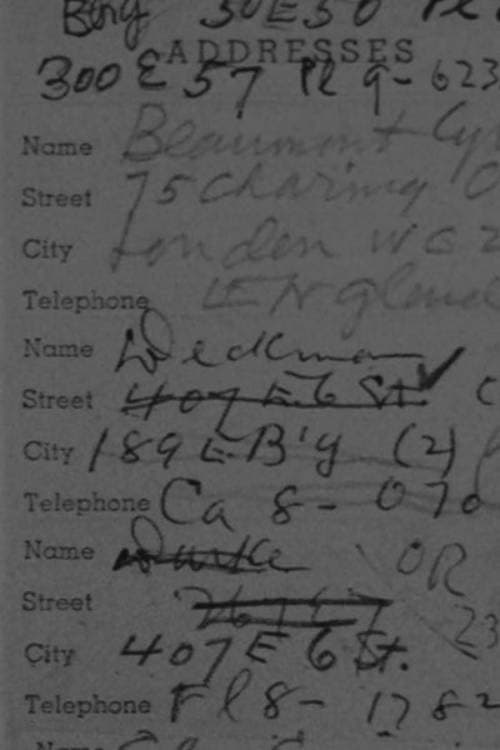 Berg 30 E 50 Pl
ADDRESSES
300 E 57 Pl 9-623
Name Beaumont
Street 75 Charing
City London WC2
Telephone ENgland
Name
Street 407 E 6 St.
City 189 E B'y (2)
Telephone Ca 8-070
Name OR
Street 23
City 407 E 6 St.
Telephone Fl 8-1782
Name